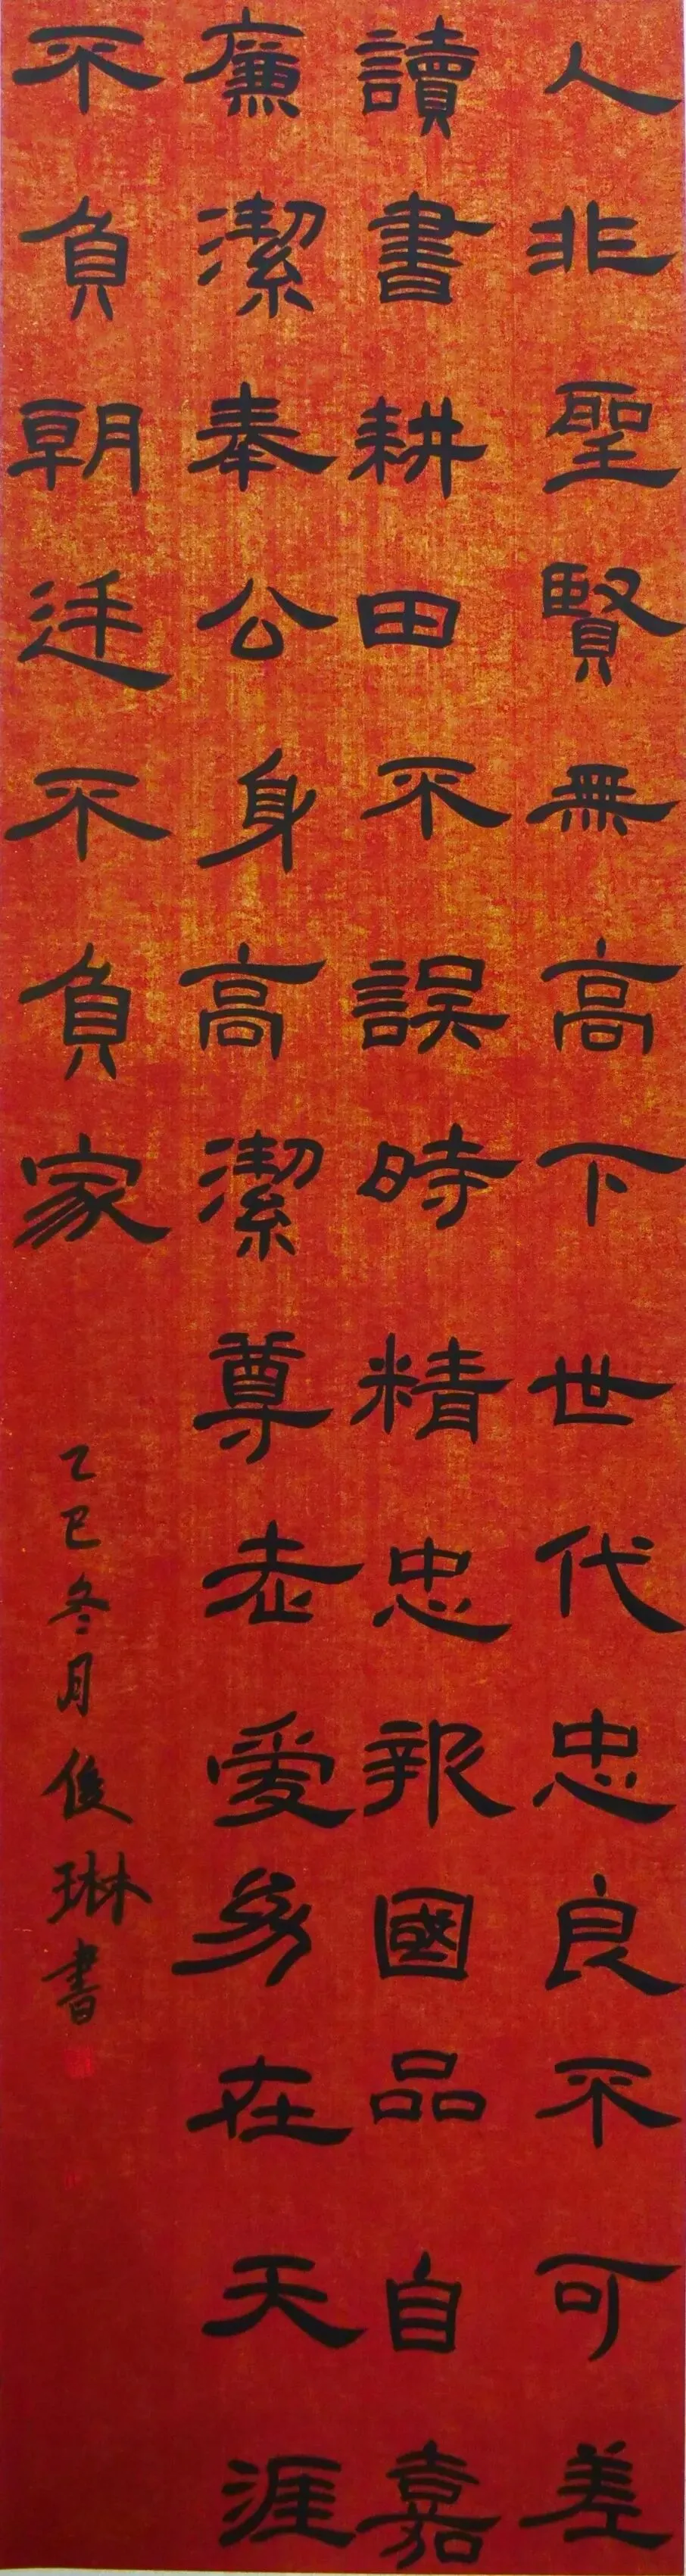 人非聖賢無高下世代忠良不可差
讀書耕田不誤時精忠報國品自嘉
廉潔奉公身高潔尊老愛幼在天涯
不負朝廷不負家
乙巳冬月俊琳書